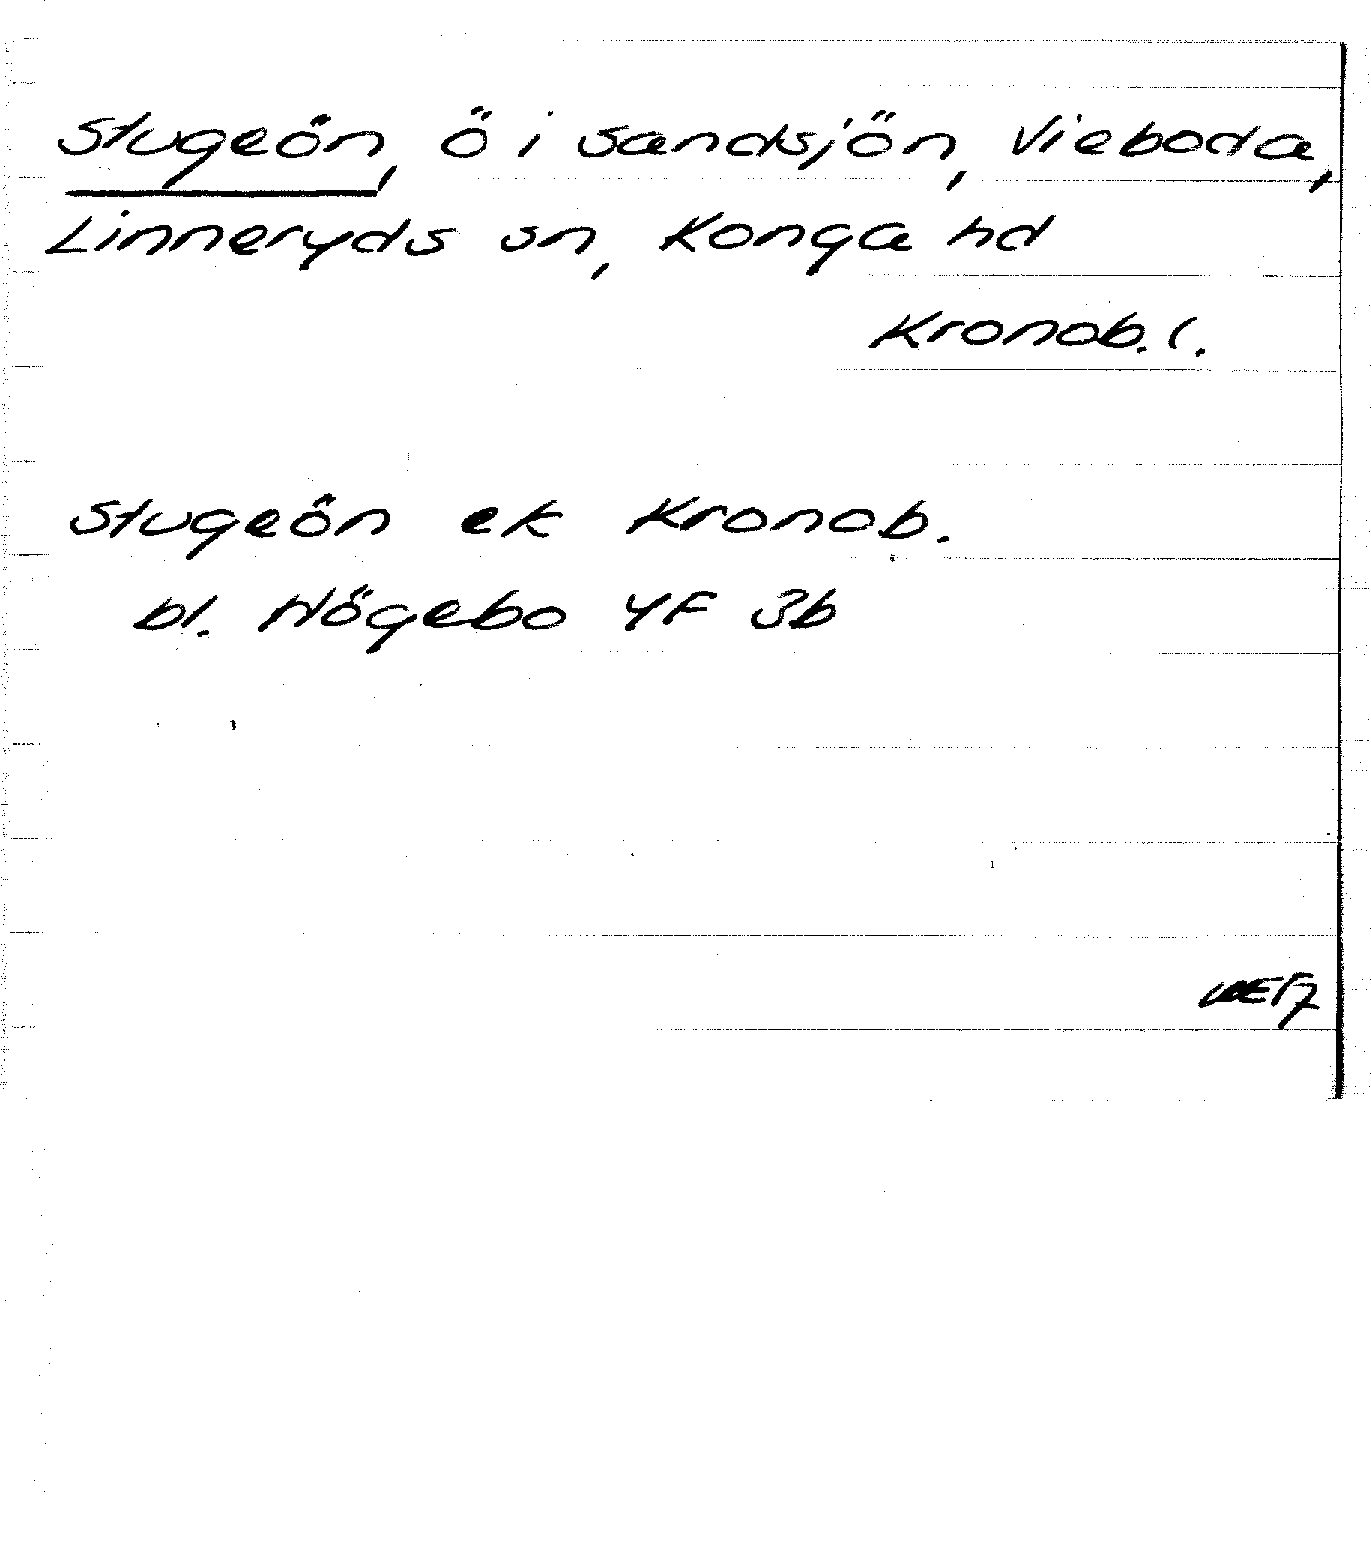 Stugeön, ö i Sandsjön, Vieboda,
Linneryds sn, Konga hd
Kronob. l.
Stugeön ek Kronob.
bl. Högebo 4F 3b